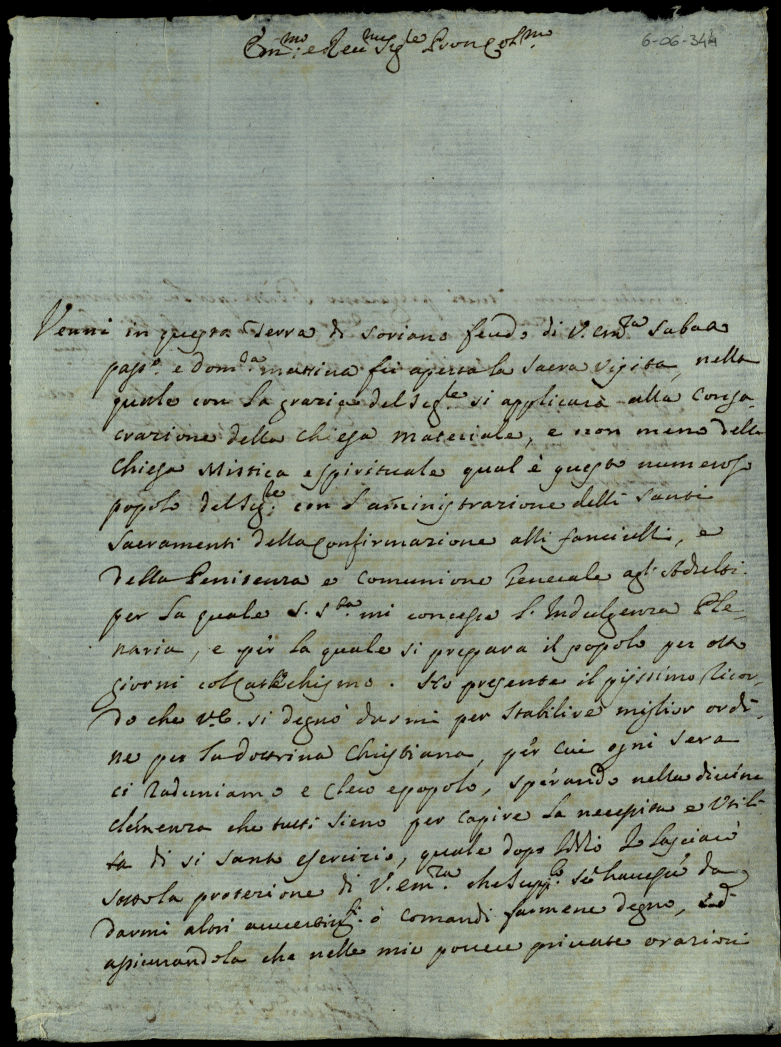 Em.mo e Rev.mo Sig.re Pron Col.mo
6-06-344
Venni in questa Terra di Soriano feudo di V. Em.za Sabato
pass.o e Dom.ca mattina fù aperta la Sacra Visita, nella
quale con la grazia del Sig.re si applicarà alla Consa-
crazione della Chiesa materiale, e non meno della
Chiesa Mistica e spirituale qual'è questo numeroso
popolo del Sig.re con l'aministrazione delli Santi
Sacramenti della Confirmazione alli fanciulli, e
della Penitenza e Comunione Generale agl'Adulti
per la quale S. S.tà mi concesse l'Indulgenza Ple-
naria, e per la quale si prepara il popolo per otto
giorni col Catechismo. Hò presente il pijssimo ricor-
do che V. E. si degnò darmi per stabilire miglior ordi-
ne per la dottrina Christiana, per cui ogni sera
ci raduniamo e Clero e popolo, sperando nella divina
clemenza che tutti sieno per capire la necessità e utili-
tà di si santo esercizio, quale dopo Iddio lo lasciarò
sotto la protezione di V. Em.za che supp.co se havesse da
darmi altri avvertim.ti ò comandi farmene degno,
assicurandola che nelle mie povere private orazioni